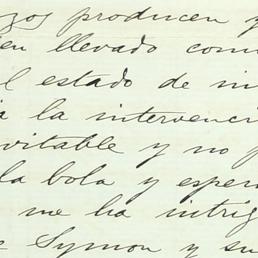 zgos producen y
en llevado com
l estado de in
a la intervenci
vitable y no p
la bola y esper
me ha intrig
e Symon y su